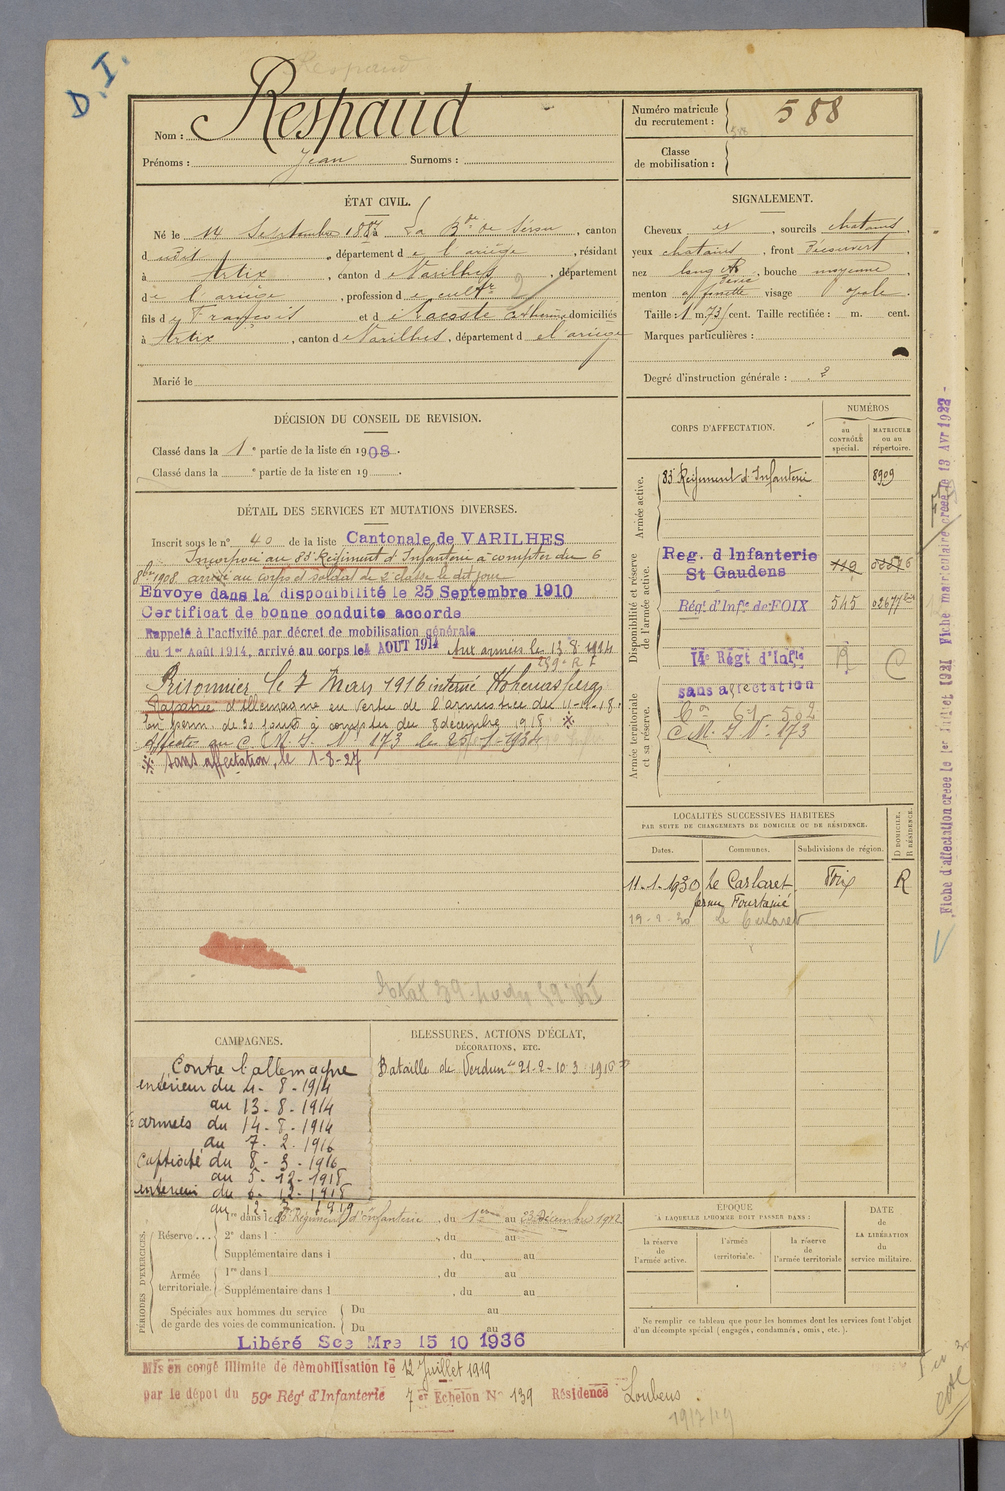 D.I.
Respaud
Nom : Respaud
Prénoms : Jean Surnoms :
Numéro matricule du recrutement : 588
Classe de mobilisation :
ÉTAT CIVIL.
Né le 14 Septembre 188 La B.de de Sérou, canton
d udit, département de l'ariège, résidant
à Artix, canton de Varilhes, département
de l'ariège, profession de cultr
fils de François et de Lacoste Catherine domiciliés
à Artix, canton de Varilhes, département de l'ariège
Marié le
SIGNALEMENT.
Cheveux et, sourcils chatains,
yeux chatains, front Découvert
nez long, bouche moyenne,
menton à fossette visage ovale.
Taille : 1 m. 73 cent. Taille rectifiée : m. cent.
Marques particulières :
Degré d'instruction générale : 2
DÉCISION DU CONSEIL DE REVISION.
Classé dans la 1e partie de la liste en 1908.
Classé dans la e partie de la liste en 19 .
DÉTAIL DES SERVICES ET MUTATIONS DIVERSES.
Inscrit sous le n° 40 de la liste Cantonale de VARILHES
Incorporé au 83e Régiment d'Infanterie à compter du 6
8bre 1908 arrivé au corps et soldat de 2e classe le dit jour
Envoyé dans la disponibilité le 25 Septembre 1910
Certificat de bonne conduite accordé
Rappelé à l'activité par décret de mobilisation générale
du 1er Août 1914, arrivé au corps le 4 AOUT 1914 Aux armées le 13 8 1914
259e R I
Prisonnier le 7 Mars 1916 interné Hohenasperg
Rapatrié d'Allemagne en vertu de l'armistice du 11-11-18.
en perm. de 30 jours à compter du 8 décembre 1918 ※
Affecté au C.M.I. N° 173 le 25-1-1934
※ sans affectation, le 1-8-27
CORPS D'AFFECTATION.
NUMÉROS
au CONTRÔLE spécial.
MATRICULE ou au répertoire.
Armée active.
83e Régiment d'Infanterie 8909
Disponibilité et réserve de l'armée active.
Reg. d Infanterie
St Gaudens
Rég.t d'Inf.ie de FOIX 545 02677
14e Régt d'Infie R C
Armée territoriale et sa réserve.
sans affectation
C.M.I N° 173
LOCALITÉS SUCCESSIVES HABITÉES
PAR SUITE DE CHANGEMENTS DE DOMICILE OU DE RÉSIDENCE.
Dates. Communes. Subdivisions de région. D DOMICILE. R RÉSIDENCE.
11-1-1930 Le Carlaret Foix R
ferme Fourtanié
19-2-30 Le Carlaret
CAMPAGNES.
Contre l'allemagne
intérieur du 4-8-1914
au 13-8-1914
armées du 14-8-1914
au 7-2-1916
captivité du 8-3-1916
au 5-12-1918
intérieur du 6-12-1918
au 12-7-1919
BLESSURES, ACTIONS D'ÉCLAT,
DÉCORATIONS, ETC.
Bataille de Verdun 21-2-10-3-1916
PÉRIODES D'EXERCICES.
Réserve.... 1re dans le Régiment d'Infanterie, du 1er au 23 Décembre 1912
2e dans l , du au
Supplémentaire dans l , du au
Armée territoriale. 1re dans l , du au
Supplémentaire dans l , du au
Spéciales aux hommes du service de garde des voies de communication. Du au
Du au
Libéré Sce Mre 15 10 1936
ÉPOQUE
À LAQUELLE L'HOMME DOIT PASSER DANS :
la réserve de l'armée active.
l'armée territoriale.
la réserve de l'armée territoriale
DATE de LA LIBÉRATION du service militaire.
Ne remplir ce tableau que pour les hommes dont les services font l'objet
d'un décompte spécial (engagés, condamnés, omis, etc.).
Mis en congé illimité de démobilisation le 12 Juillet 1919
par le dépôt du 59e Régt d'Infanterie 7e Echelon N° 139 Résidence Loubens
1917/19
Fiche d'affectation créée le 1er Juillet 1921 Fiche matriculaire créée le 13 Avr 1922